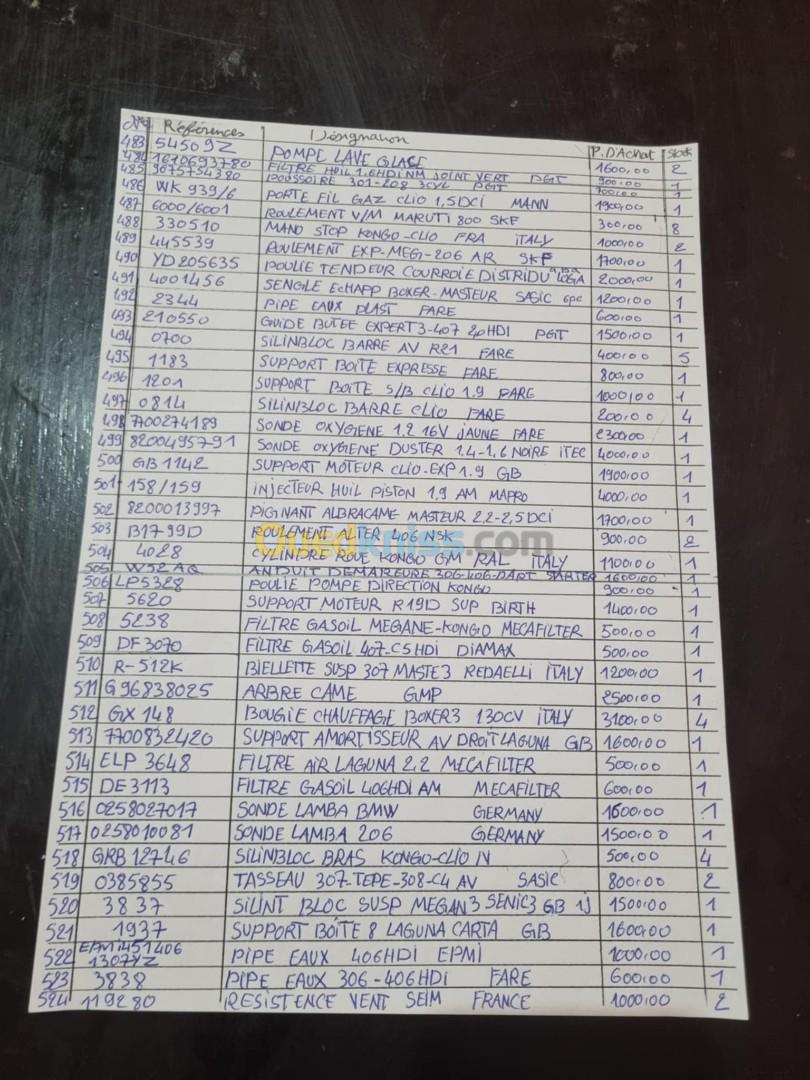 N° Références Désignation P.D'Achat Stock
483 545092 POMPE LAVE GLACE 1600,00 2
484 1610693780 FILTRE HUIL 1.6HDI NM JOINT VERT PGT 900,00 1
485 9675754380 POUSSOIRE 301-208 3CYL PGT 700,00 1
486 WK 939/6 PORTE FIL GAZ CLIO 1,5DCI MANN 1900,00 1
487 6000/6001 ROULEMENT V/M MARUTI 800 SKF 300,00 8
488 330510 MANO STOP KONGO-CLIO FRA ITALY 1000,00 2
489 445539 ROULEMENT EXP-MEG1-206 AR SKF 1700,00 1
490 YD205635 POULIE TENDEUR COURROIE DISTRIDU 2000,00 1
491 4001456 SENGLE ECHAPP BOXER-MASTEUR SASIC 6pc 1200,00 1
492 2344 PIPE EAUX PLAST FARE 600,00 1
493 210550 GUIDE BUTEE EXPERT3-407 2.0HDI PGT 1500,00 1
494 0700 SILINBLOC BARRE AV R21 FARE 400,00 5
495 1183 SUPPORT BOITE EXPRESSE FARE 800,00 1
496 1201 SUPPORT BOITE S/B CLIO 1.9 FARE 1000,00 1
497 0814 SILINBLOC BARRE CLIO FARE 200,00 4
498 7700274189 SONDE OXYGENE 1,2 16V JAUNE FARE 2300,00 1
499 8200495791 SONDE OXYGENE DUSTER 1,4-1,6 NOIRE ITEC 4000,00 1
500 GB1142 SUPPORT MOTEUR CLIO-EXP 1.9 GB 1900,00 1
501 158/159 INJECTEUR HUIL PISTON 1,9 AM MAPRO 4000,00 1
502 8200013997 PIGINANT ALBRACAME MASTEUR 2,2-2,5DCI 1700,00 1
503 B1799D ROULEMENT ALTER 406 NSK 900,00 2
Ouedkniss.com
504 4028 CYLINDRE ROUE KONGO GM RAL ITALY 1100,00 1
505 W52AQ ANDUIT DEMAREURE 306-406-DART STARTER 1600,00 1
506 LP5328 POULIE POMPE DIRECTION KONGO 900,00 1
507 5620 SUPPORT MOTEUR R19D SUP BIRTH 1400,00 1
508 5238 FILTRE GASOIL MEGANE-KONGO MECAFILTER 500,00 1
509 DF3070 FILTRE GASOIL 407-C5 HDI DIAMAX 500,00 1
510 R-512K BIELLETTE SUSP 307 MASTE3 REDAELLI ITALY 1200,00 1
511 G96838025 ARBRE CAME GMP 2500,00 1
512 GX 148 BOUGIE CHAUFFAGE BOXER3 130CV ITALY 3100,00 4
513 7700832420 SUPPORT AMORTISSEUR AV DROIT LAGUNA GB 1600,00 1
514 ELP 3648 FILTRE AIR LAGUNA 2.2 MECAFILTER 500,00 1
515 DE3113 FILTRE GASOIL 406HDI AM MECAFILTER 600,00 1
516 0258027017 SONDE LAMBA BMW GERMANY 1600,00 1
517 0258010081 SONDE LAMBA 206 GERMANY 1500,00 1
518 GRB 12746 SILINBLOC BRAS KONGO-CLIO IV 500,00 4
519 0385855 TASSEAU 307-TEPE-308-C4 AV SASIC 800,00 2
520 3837 SILINT BLOC SUSP MEGAN3 SENIC3 GB 1J 1500,00 1
521 1937 SUPPORT BOITE 8 LAGUNA CARTA GB 1600,00 1
522 EPMI451406 1307YZ PIPE EAUX 406HDI EPMI 1000,00 1
523 3838 PIPE EAUX 306-406HDI FARE 600,00 1
524 119280 RESISTENCE VENT SEIM FRANCE 1000,00 2